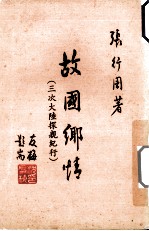 張行周著
故國鄉情
(三次大陸探親紀行)